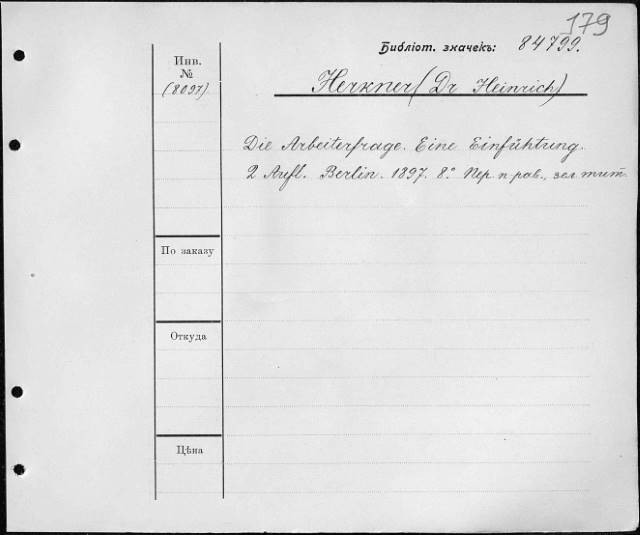 179
Библіот. значекъ: 84799.
Инв.
№
(8097)
Herkner (Dr Heinrich)
Die Arbeiterfrage. Eine Einfühtung.
2 Aufl. Berlin. 1897. 8º. Пер. п рав., зел тит
По заказу
Откуда
Цѣна